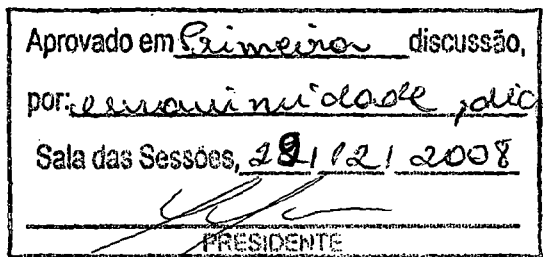 Aprovado em Primeira discussão,
por: unanimidade
Sala das Sessões, /12/2008
PRESIDENTE